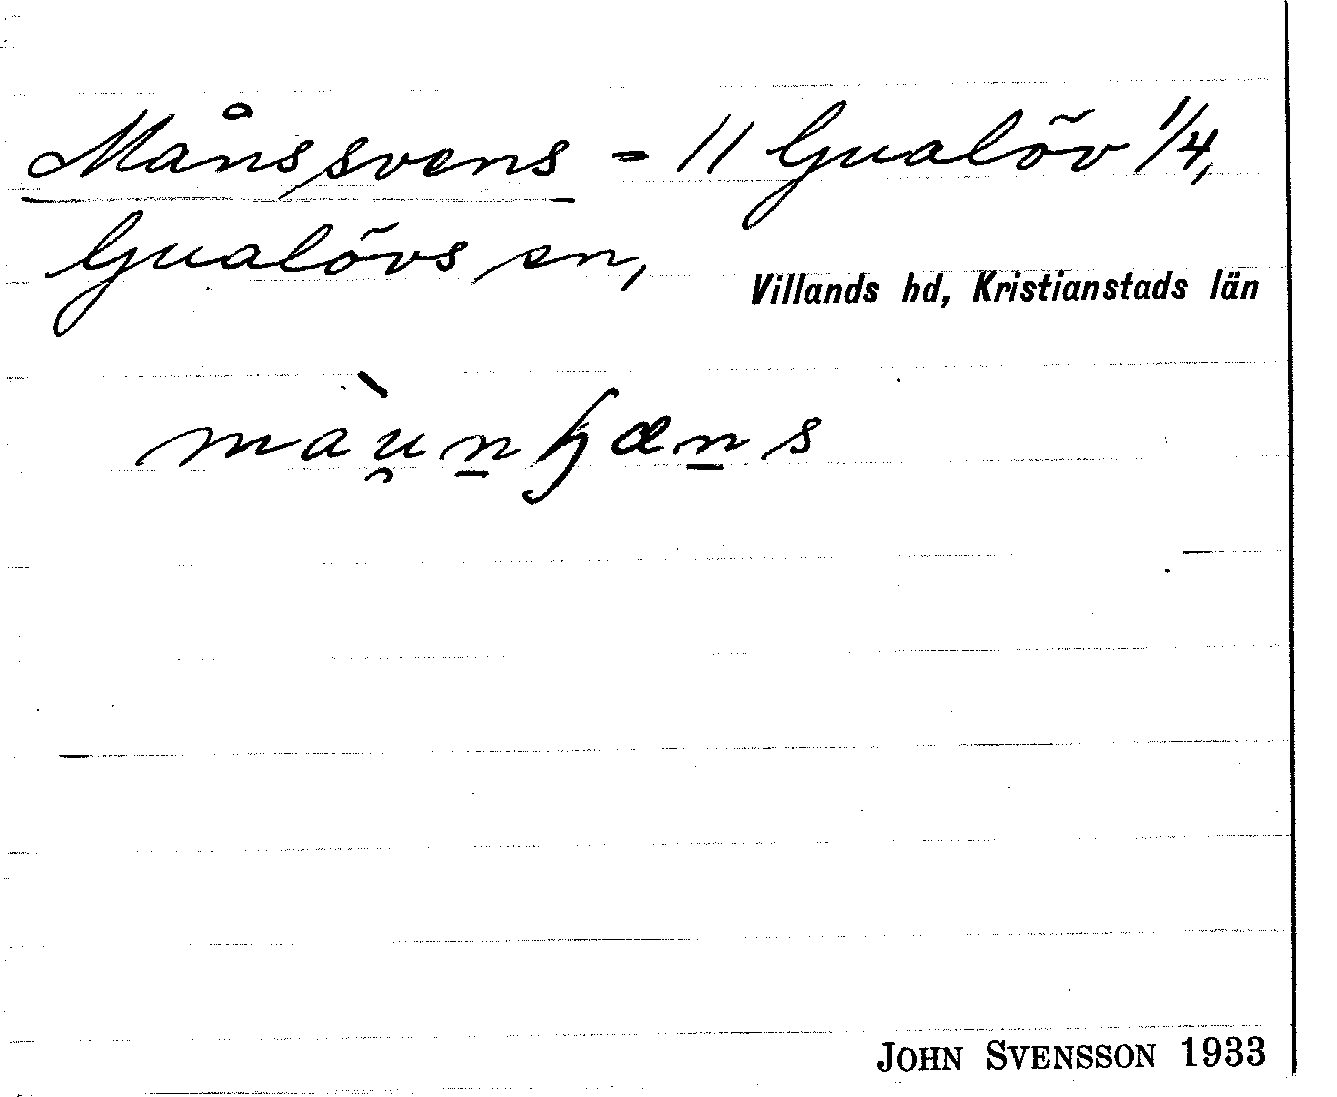 Månssvens = 11 Gualöv 1/4,
Gualövs sn,
Villands hd, Kristianstads län
JOHN SVENSSON 1933